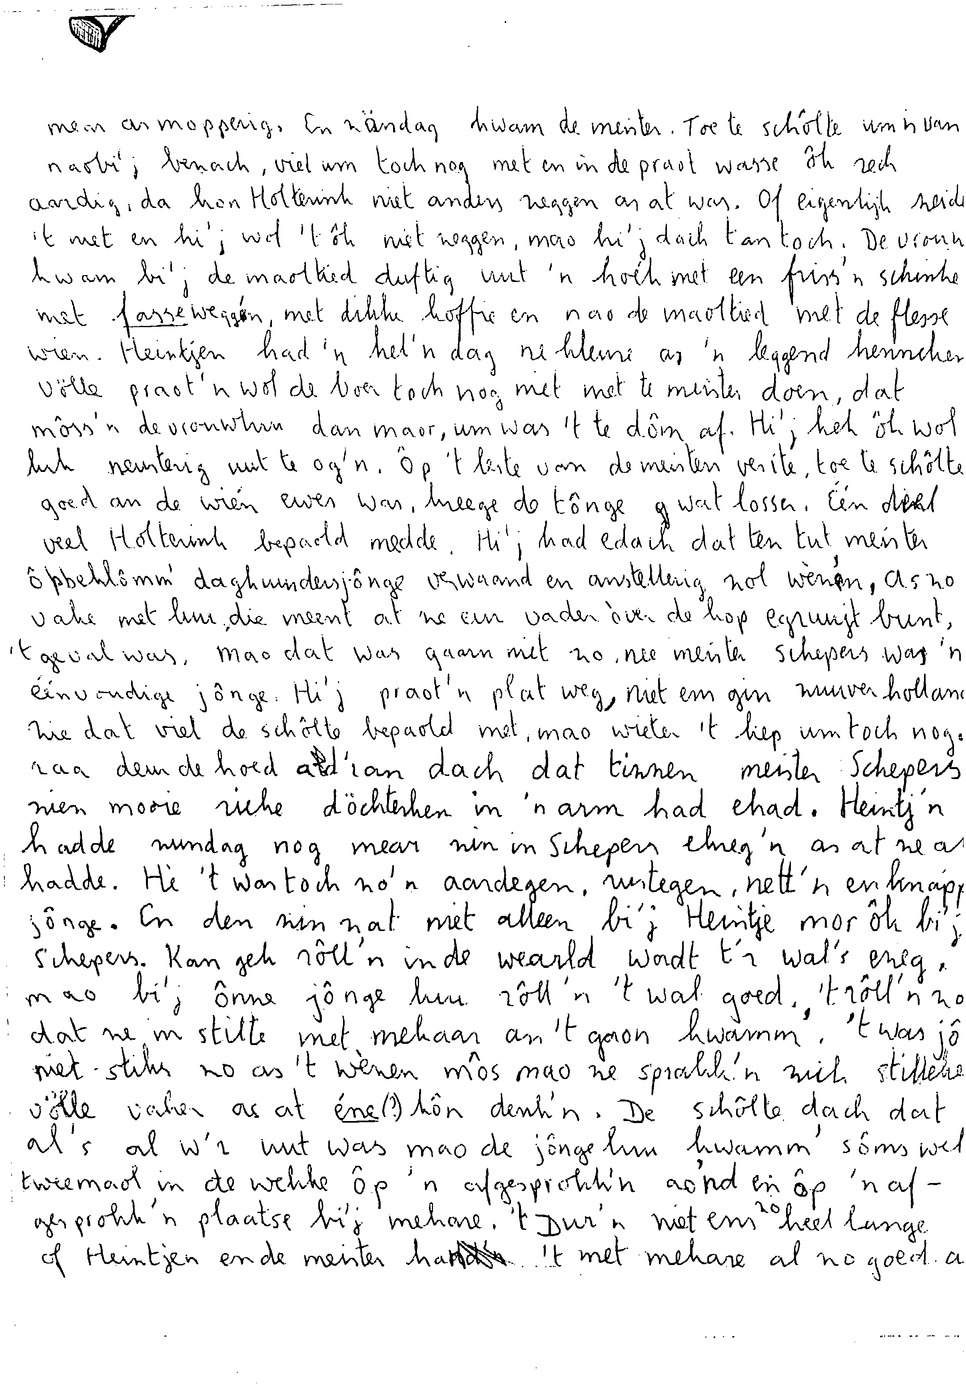 mear as mopperig. En zöndag kwam de meister. Toe te schôlte um is van
naobi'j bekeek, viel um toch nog met en in de praot wasse ôk rech
aardig, da kon Holterink niet anders zeggen as at was. Of eigenlijk zeide
't met en hi'j wol 't ôk niet zeggen, mao hi'j dach t'an toch. De vrouw
kwam bi'j de maoltied duftig uut 'n hoek met een friss'n schinke
met fasseweggén, met dikke koffie en nao de maoltied met de flesse
wien. Heintjen had 'n hel'n dag ne kleure as 'n leggend henneken
völle praot'n wol de boer toch nog met met te meister doen, dat
môss'n de vrouwluu dan maor, um was 't te dôm af. Hi'j kek ôk wol
luk neusterig uut te og'n. Ôp 't leste van de meister visite, toe te schôlte
goed an de wién ewes was, kreege de tônge wat losser. Eén deel
veel Holterink bepaold medde. Hi'j had edach dat ten tut, meister
ôpbeklômm' daghuundersjônge verwaand en anstellerig zol wènen, as zo
vake met luu, die meent at ze eur vader òver de kop egruujt bunt,
't geval was. mao dat was gaarn niet zo, nee meister Schepers was 'n
éénvoudige jônge. Hi'j praot'n plat weg, niet em gin zuuver holland
Nie dat viel de schôlte bepaold met, mao wieter 't liep um toch nog.
raa deur de hoed ald'ran dach dat tinnen meister Schepers
zien mooie rieke döchterken in 'n arm had ehad. Heintj'n
hadde zundag nog mear zin in Schepers ekreg'n as at ze a
hadde. Hè 't was toch zo'n aardegen, rustegen, nett'n en knapp
jônge. En den zin zat niet alleen bi'j Heintje mor ôk bi'j
Schepers. Kan geh rôll'n in de wearld wordt t'r wal's ezeg,
mao bi'j ônne jônge luu rôll'n 't wal goed, 't rôll'n zo
dat ze in stilte met mekaar an 't gaon kwamm'. 't was jô
niet stiks zo as 't wènen môs mao ze sprakk'n zich stilleke
völle vaker as at éne(?) kôn denk'n. De schôlte dach dat
al's al w'r uut was mao de jônge luu kwamm' sôms wel
tweemaol in de wekke ôp 'n afgesprokk'n aovnd en ôp 'n af-
gesprokk'n plaatse bi'j mekare. 't Dur'n niet ems zo heel lange
of Heintjen en de meister had 't met mekare al zo goed a